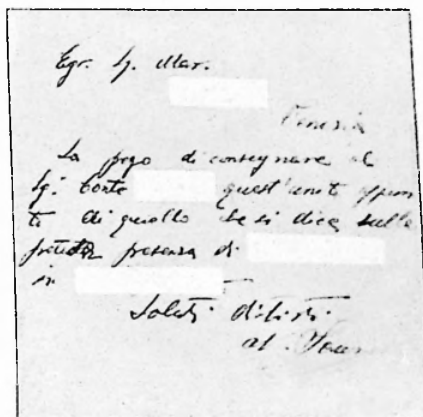 Egr. Sg. Mar.
Venezia
La prego di consegnare al
Sg. Corte quest'uniti appun
ti di quello che si dice sulla
presenza di
in
Saluti distinti